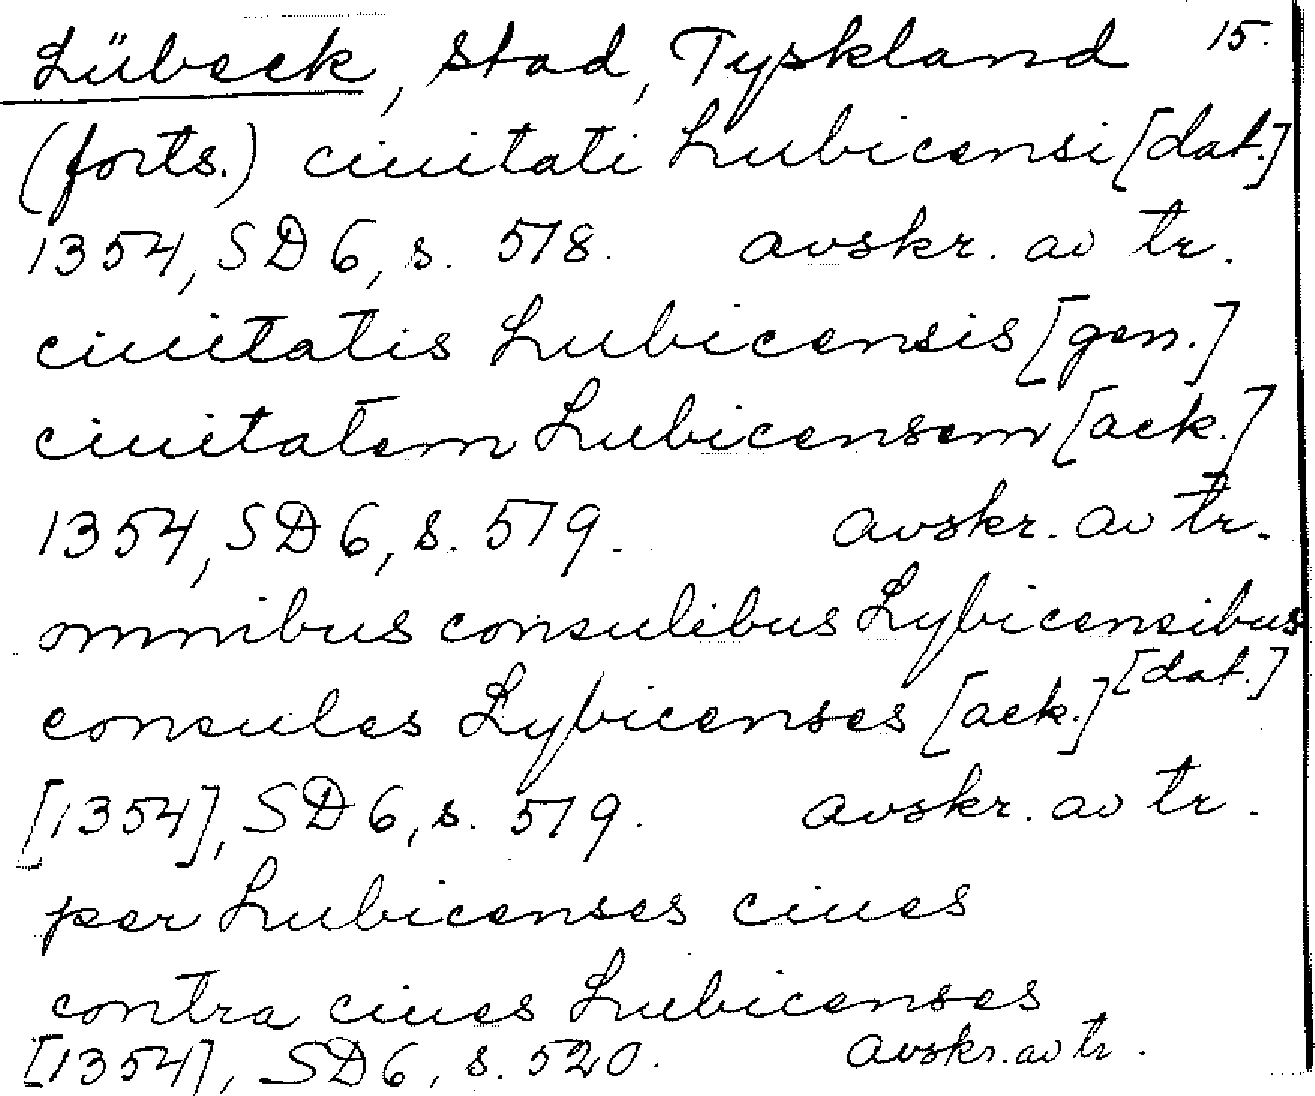 Lübeck, stad, Tyskland 15.
(forts.) ciuitati Lubicensi [dat.]
1354, SD 6, s. 518. avskr. av tr.
ciuitatis Lubicensis [gen.]
ciuitatem Lubicensem [ack.]
1354, SD 6, s. 519. avskr. av tr.
omnibus consulibus Lybicensibus
[dat.]
consules Lybicenses [ack.]
[1354], SD 6, s. 519. avskr. av tr.
per Lubicenses ciues
contra ciues Lubicenses
[1354], SD 6, s. 520. avskr. av tr.